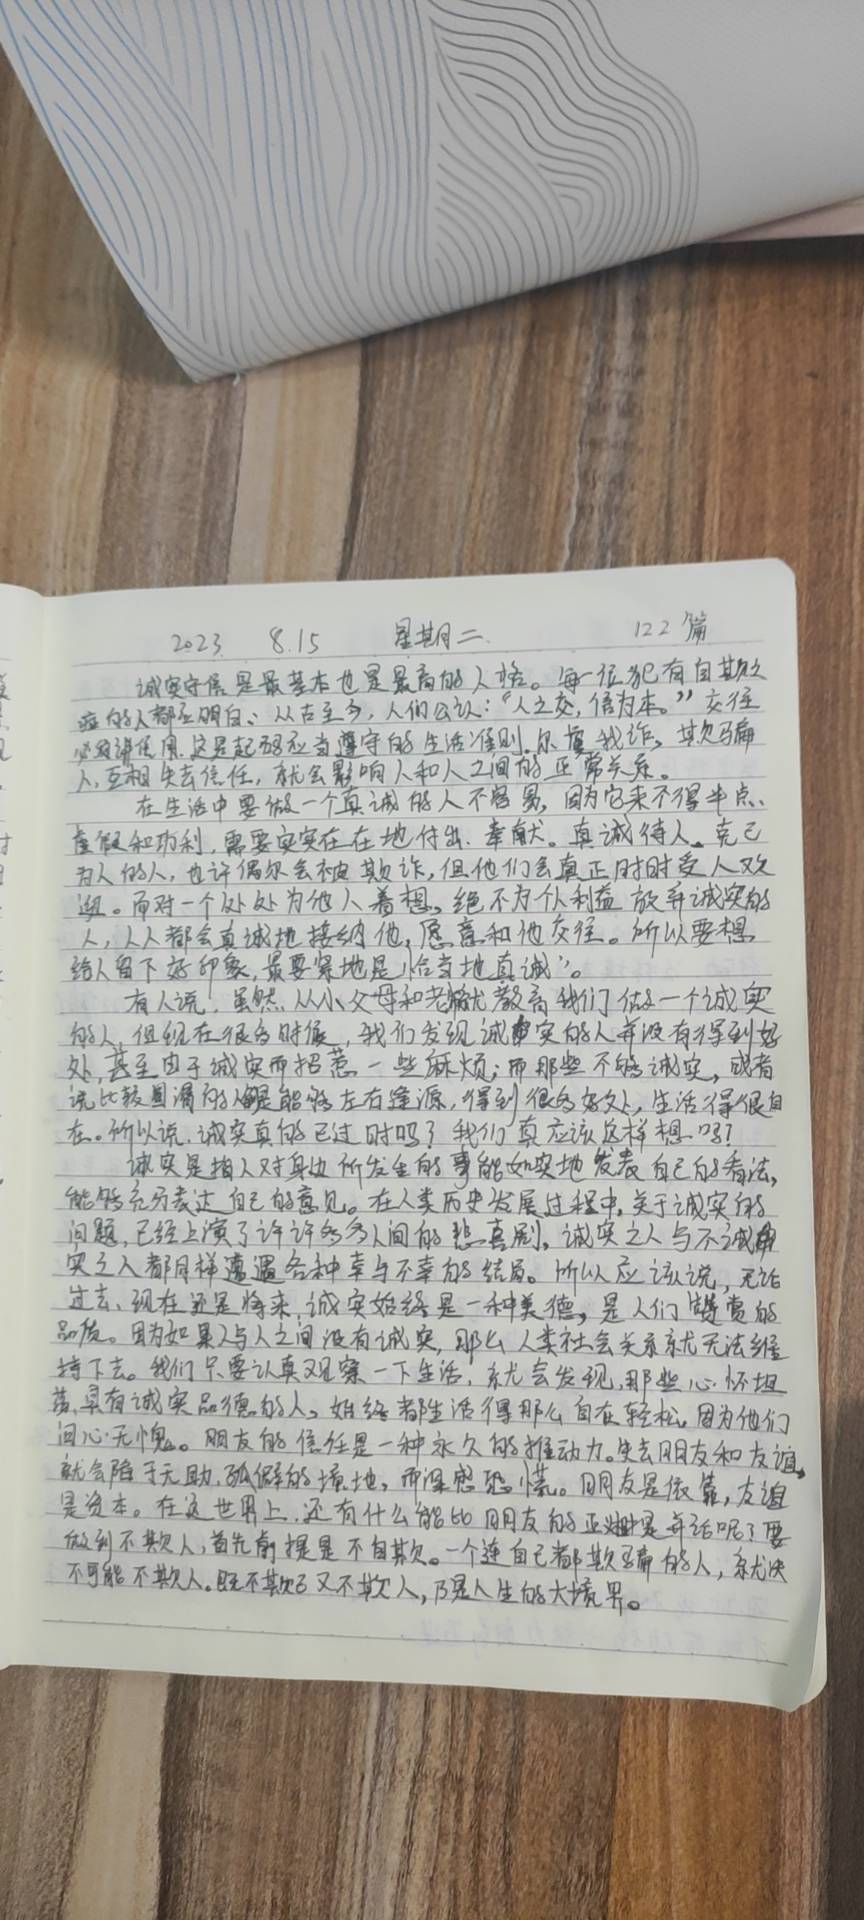 2023 8.15 星期二 122篇
诚实守信是最基本也是最高的人格。每一位犯有自欺之
症的人都应明白、从古至今，人们公认：“人之交，信为本。”交往
必须讲信用，这是起码应当遵守的生活准则，尔虞我诈，欺骗
人，互相失去信任，就会影响人和人之间的正常关系。
在生活中要做一个真诚的人不容易，因为它来不得半点、
虚假和功利，需要实实在在地付出、奉献。真诚待人、克己
为人的人，也许偶尔会被欺诈，但他们会真正时时受人欢
迎。而对一个处处为他人着想，绝不为个人利益放弃诚实的
人，人人都会真诚地接纳他，愿意和他交往。所以要想
给人留下好印象，最要紧地是“恰当地真诚”。
有人说，虽然从小父母和老师就教育我们做一个诚实
的人，但现在很多时候，我们发现诚实的人并没有得到好
处，甚至由于诚实而招惹一些麻烦；而那些不够诚实，或者
说比较圆滑的人倒是能够左右逢源，得到很多好处，生活得很自
在。所以说，诚实真的已过时吗？我们真应该这样想吗？
诚实是指人对身边所发生的事能如实地发表自己的看法，
能够充分表达自己的意见。在人类历史发展过程中，关于诚实的
问题，已经上演了许许多多人间的悲喜剧，诚实之人与不诚
实之人都同样遭遇各种幸与不幸的结局。所以应该说，无论
过去、现在还是将来，诚实始终是一种美德，是人们赞赏的
品质。因为如果人与人之间没有诚实，那么人类社会关系就无法维
持下去。我们只要认真观察一下生活，就会发现，那些心怀坦
荡，具有诚实品德的人，始终都生活得那么自在轻松，因为他们
问心无愧。朋友的信任是一种永久的推动力。失去朋友和友谊，
就会陷于无助、孤僻的境地，而深感恐慌。朋友是依靠，友谊
是资本。在这世界上，还有什么能比朋友的正是并话呢？要
做到不欺人，首先前提是不自欺。一个连自己都欺骗的人，就决
不可能不欺人。既不欺己又不欺人，乃是人生的大境界。